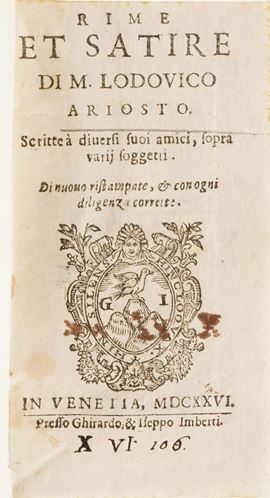 RIME
ET SATIRE
DI M. LODOVICO
ARIOSTO.
Scritte à diuersi suoi amici, sopra
varij soggetti.
Di nuouo ristampate, & con ogni
diligenza corrette.
G I
IN VENETIA, MDCXXVI.
Presso Ghirardo, & Iseppo Imberti.
X VI 106.